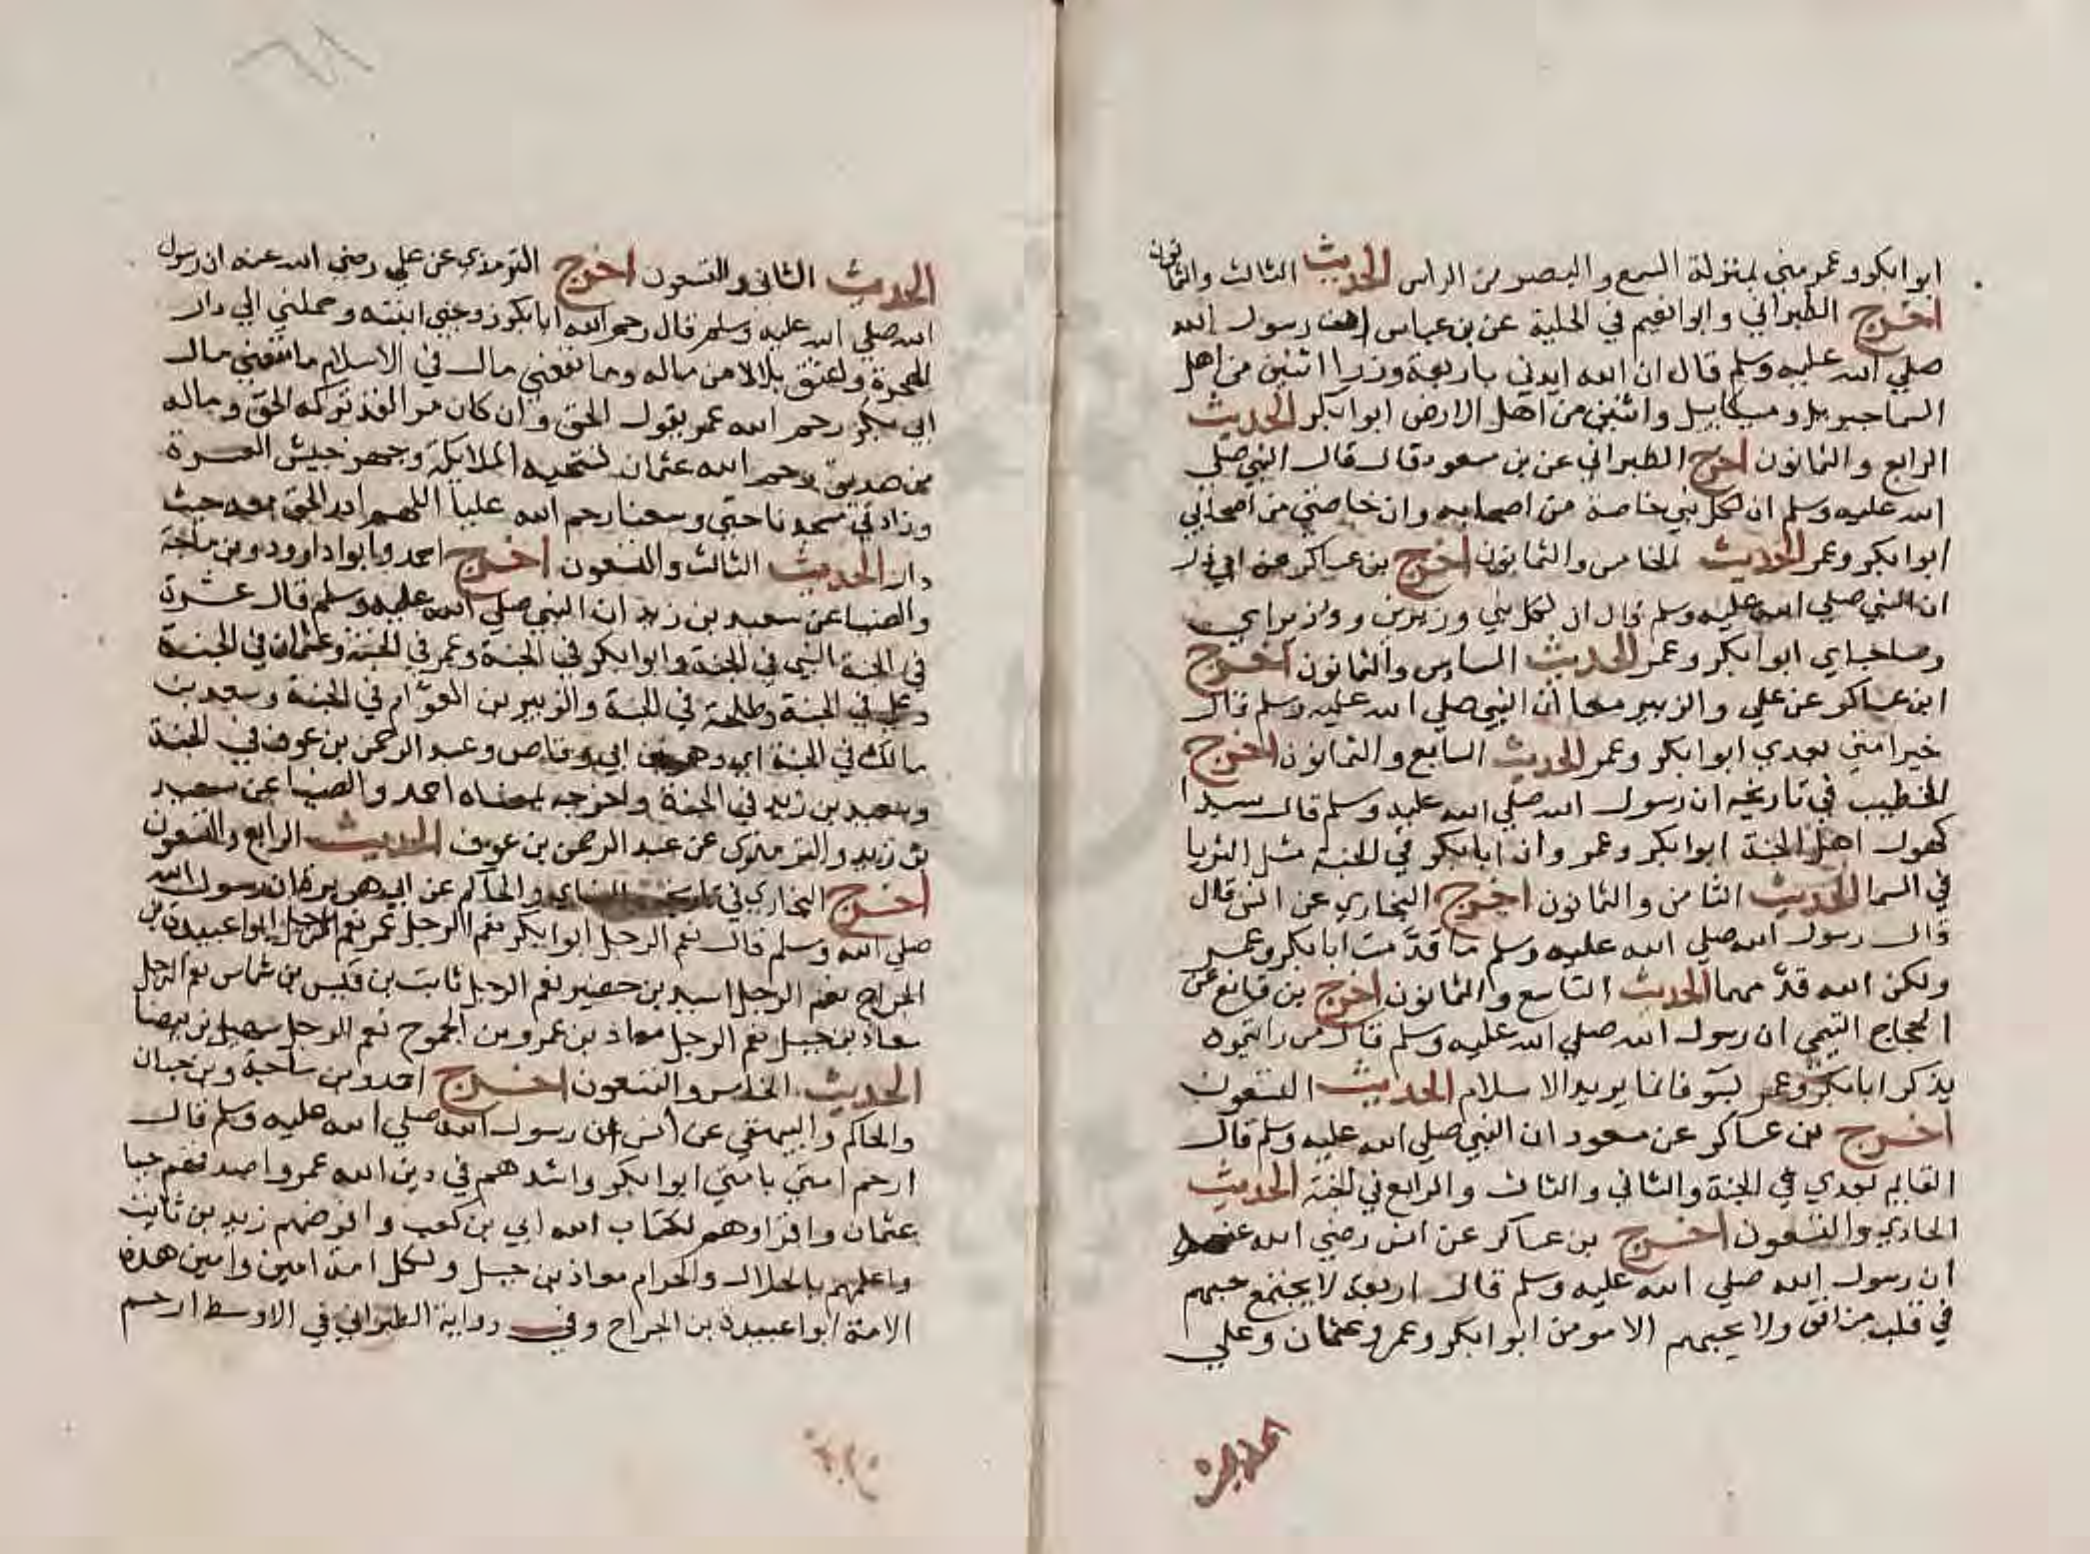 ابوابكر وعمر مني بمنزلة السمع والبصر من الراس الحديث الثالث والثمانون
اخرج الطبراني وابوانعيم في الحلية عن بن عباس ان رسول الله
صلي الله عليه وسلم قال ان الله ايدني باربعة وزرا اثنين من اهل
السماجبريل وميكاييل واثنين من اهل الارض ابوابكر الحديث
الرابع والثمانون اخرج الطبراني عن بن مسعود قال قال النبي صلي
الله عليه وسلم ان لكل نبي خاصة من اصحابه وان خاصتي من اصحابي
ابوابكر وعمر الحديث الخامس والثمانون اخرج بن عساكر عن ابي ذر
ان النبي صلي الله عليه وسلم قال ان لكل نبي وزيرين ووزيراي
وصاحباي ابوابكر وعمر الحديث السادس والثمانون اخرج
ابن عساكر عن علي والزبير معا ان النبي صلي الله عليه وسلم قال
خير امتي بعدي ابوابكر وعمر الحديث السابع والثمانون اخرج
الخطيب في تاريخه ان رسول الله صلي الله عليه وسلم قال سيدا
كهول اهل الجنة ابوابكر وعمر وان ابابكر في الجنة مثل الثريا
في السما الحديث الثامن والثمانون اخرج البخاري عن انس قال
قال رسول الله صلي الله عليه وسلم ما قدّمت ابابكر وعمر
ولكن الله قدّمهما الحديث التاسع والثمانون اخرج بن قانع عن
الحجاج التيمي ان رسول الله صلي الله عليه وسلم قال من رايتموه
يذكر ابابكر وعمر بسو فانما يريد الاسلام الحديث التسعون
اخرج بن عساكر عن مسعود ان النبي صلي الله عليه وسلم قال
القايم بعدي في الجنة والثاني والثالث والرابع في الجنة الحديث
الحادي والتسعون اخرج بن عساكر عن انس رضي الله عنه
ان رسول الله صلي الله عليه وسلم قال اربعة لا يجتمع حبهم
في قلب منافق ولا يحبهم الا مومن ابوابكر وعمر وعثمان وعلي
الحديث
الحديث الثاني والتسعون اخرج الترمذي عن علي رضي الله عنه ان رسول
الله صلي الله عليه وسلم قال رحم الله ابابكر زوجني ابنته وحملني الي دار
الهجرة واعتق بلالا من ماله وما نفعني مال في الاسلام ما نفعني مال
ابي بكر رحم الله عمر يقول الحق وان كان مرا لقد تركه الحق وماله
من صديق رحم الله عثمان تستحيه الملايكة وجهز جيش العسرة
وزاد في مسجدنا حتي وسعنا رحم الله عليا اللهم ادر الحق معه حيث
دار الحديث الثالث والتسعون اخرج احمد وابوا داوود وبن ماجة
والضيا عن سعيد بن زيد ان النبي صلي الله عليه وسلم قال عشرة
في الجنة النبي في الجنة وابوابكر في الجنة وعمر في الجنة وعثمان في الجنة
وعلي في الجنة وطلحة في الجنة والزبير بن العوّام في الجنة وسعد بن
مالك في الجنة اي وهو بن ابي وقاص وعبد الرحمن بن عوف في الجنة
وسعيد بن زيد في الجنة واخرجه بمعناه احمد والضيا عن سعيد
بن زيد والترمذي عن عبد الرحمن بن عوف الحديث الرابع والتسعون
اخرج البخاري في تاريخه والنساي والحاكم عن ابي هريرة ان رسول الله
صلي الله وسلم قال نعم الرجل ابوابكر نعم الرجل عمر نعم الرجل ابواعبيدة بن
الجراح نعم الرجل اسيد بن حضير نعم الرجل ثابت بن قيس بن شماس نعم الرجل
معاذ بن جبل نعم الرجل معاذ بن عمرو بن الجموح نعم الرجل سهيل بن بيضا
الحديث الخامس والتسعون اخرج احمد وبن ماجة وبن حبان
والحاكم والبيهقي عن انس ان رسول الله صلي الله عليه وسلم قال
ارحم امتي بامتي ابوابكر واشدهم في دين الله عمر واصدقهم حيا
عثمان واقراوهم لكتاب الله ابي بن كعب وافرضهم زيد بن ثابت
واعلمهم بالحلال والحرام معاذ بن جبل ولكل امة امين وامين هذه
الامة ابواعبيدة بن الجراح وفي رواية الطبراني في الاوسط ارحم